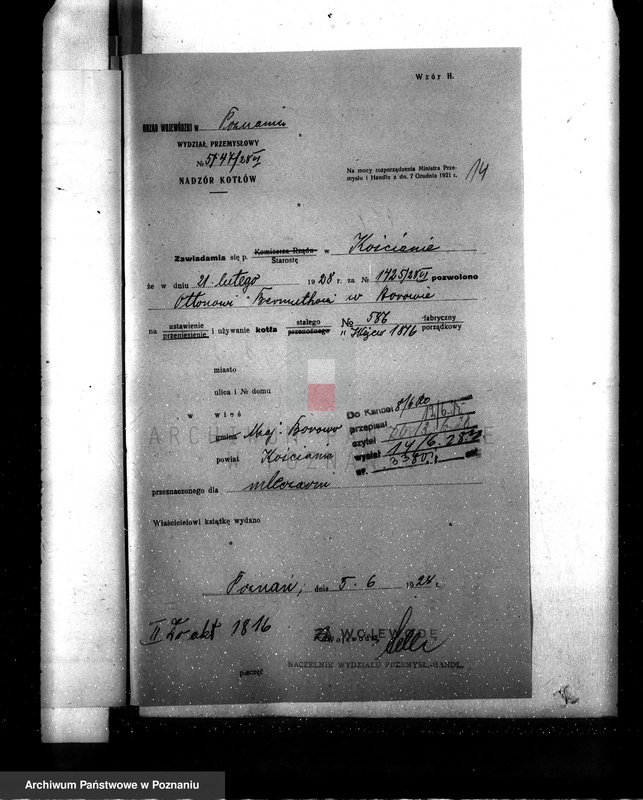 Wzór H.
URZĄD WOJEWÓDZKI w Poznaniu
WYDZIAŁ PRZEMYSŁOWY
№ 5747/28 VI
NADZÓR KOTŁÓW
Na mocy rozporządzenia Ministra Prze-
mysłu i Handlu z dn. 7 Grudnia 1921 r.
14
Zawiadamia się p. Komisarza Rządu w Kościanie
Starostę
że w dniu 21. lutego 1928 r. za № 1725/28 VI pozwolono
Ottonowi w Borowie
na ustawienie i używanie kotła stałego № 586 fabryczny
przeniesienie przenośnego 1876 porządkowy
miasto
ulica i № domu
w wieś
gmina Maj. Borowo
powiat Kościanie
przeznaczonego dla mleczarni
Do Kancel 8/6
przepisał
czytał
wysłał 14/6.28
Nr.
Właścicielowi książkę wydano
Poznań, dnia 5. 6 1928 r.
II Zo akt 1816
ZA WOJEWODĘ
NACZELNIK WYDZIAŁU PRZEMYSŁ.-HANDL.
pieczęć
ARCHIWUM PAŃSTWOWE
W POZNANIU
Archiwum Państwowe w Poznaniu